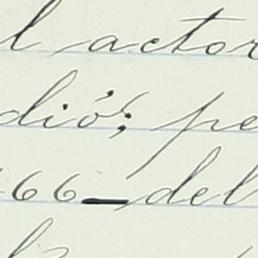 l actor
dió; pe
66_del